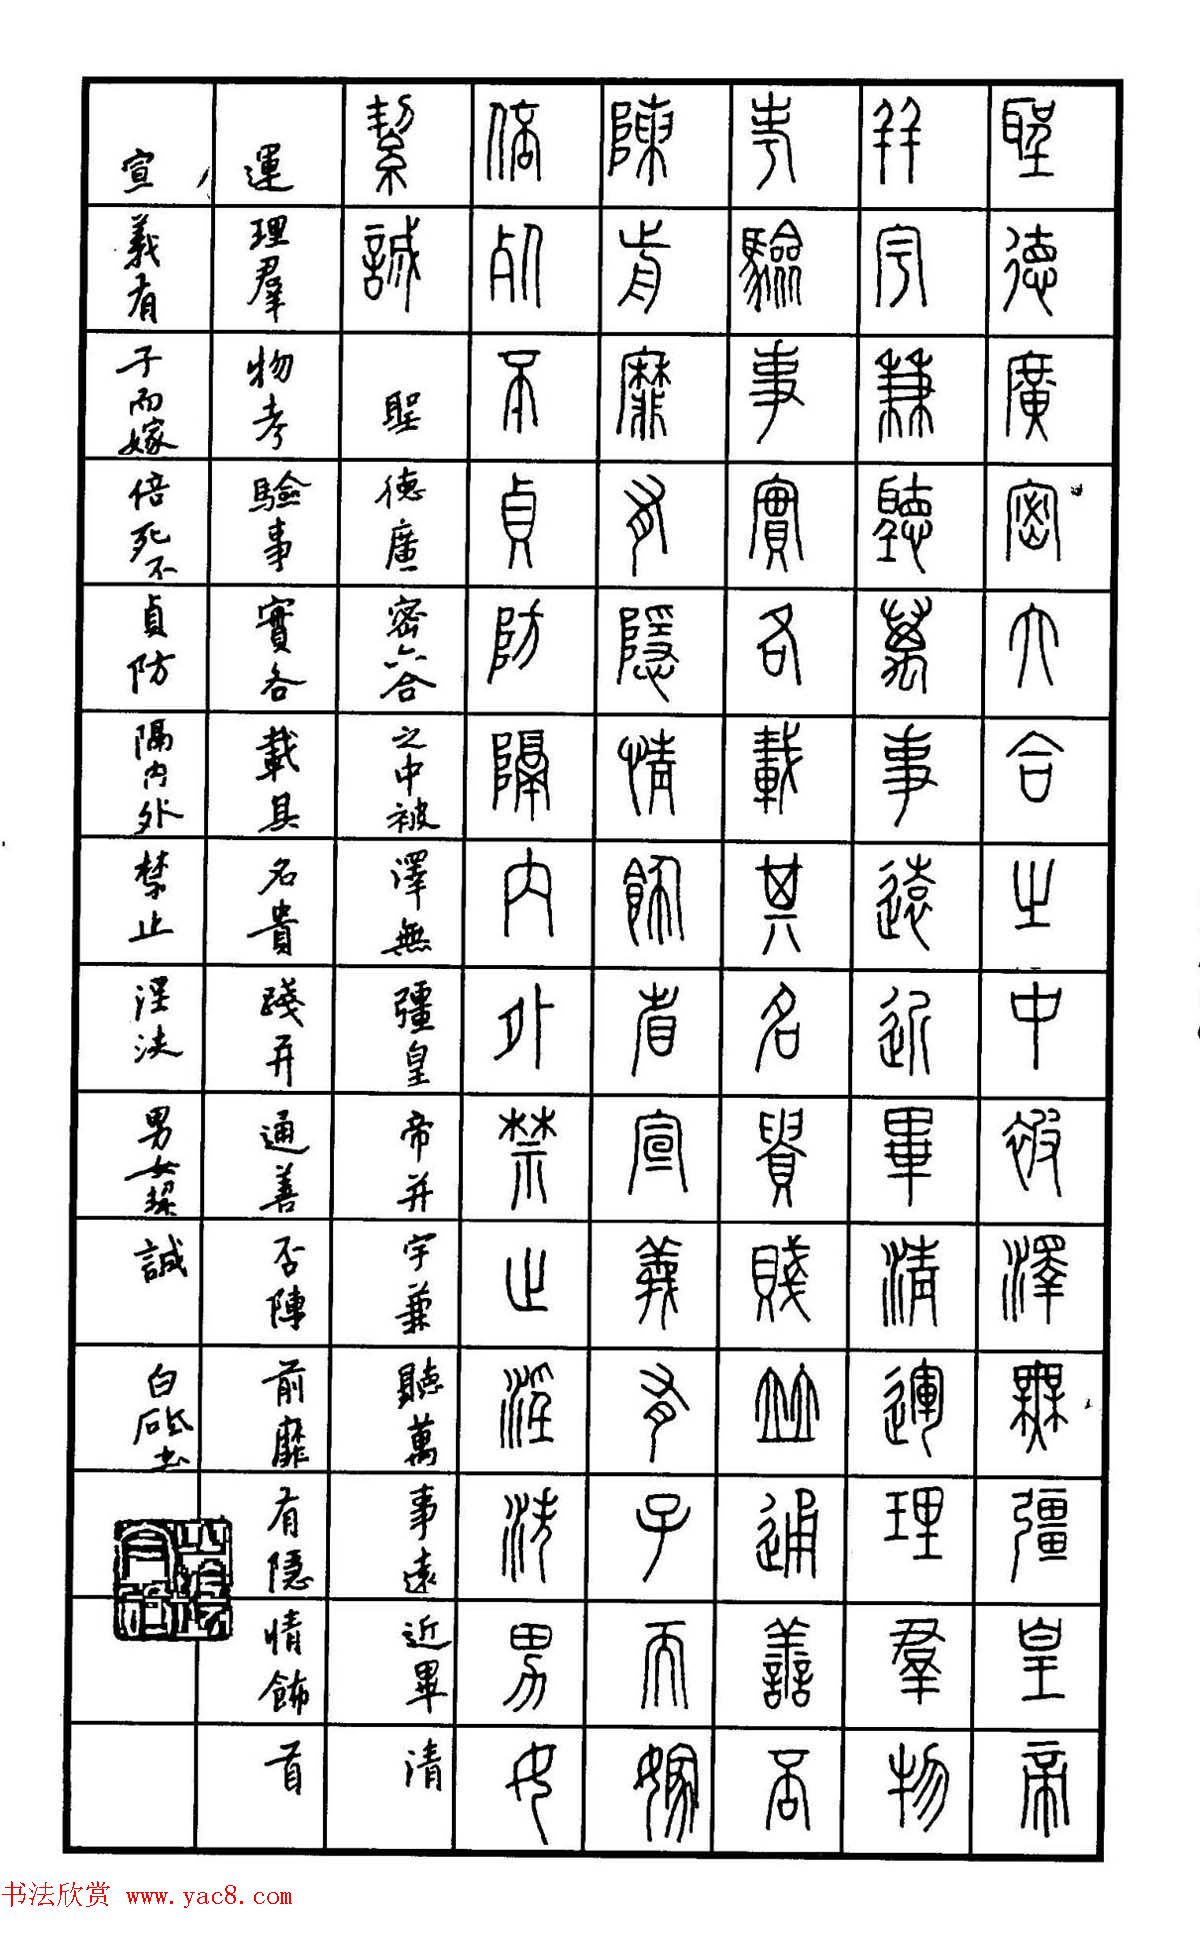 聖德廣密六合之中被澤無彊皇帝
并宇兼聽萬事遠近畢清運理羣物
考驗事實各載其名貴賤並通善否
陳前靡有隱情飾省宣義有子而嫁
倍死不貞防隔內外禁止淫泆男女
絜誠
聖德廣密六合之中被澤無彊皇帝并宇兼聽萬事遠近畢清
運理羣物考驗事實各載其名貴賤并通善否陳前靡有隱情飾省
宣義有子而嫁倍死不貞防隔內外禁止淫泆男女絜誠
白砥书
书法欣赏 www.yac8.com